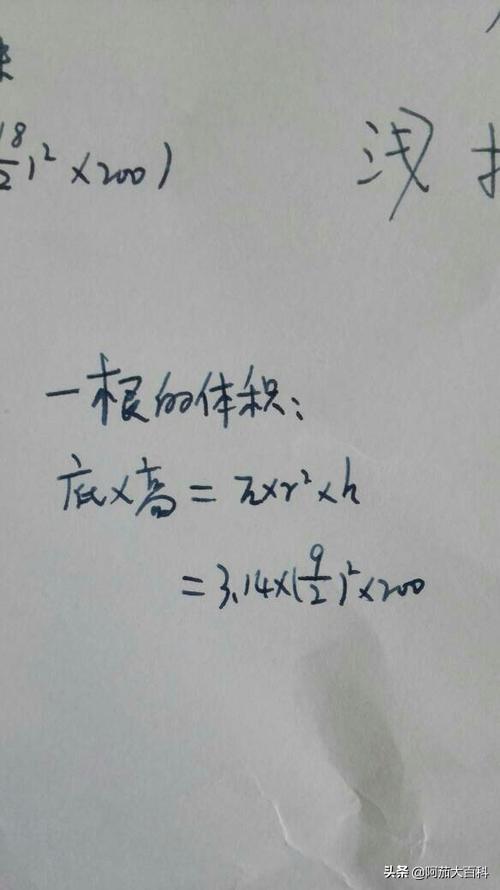 18/2)² ×200)
浅
一根的体积:
底×高=π×r²×h
=3.14×(9/2)²×200
头条 @阿茄大百科